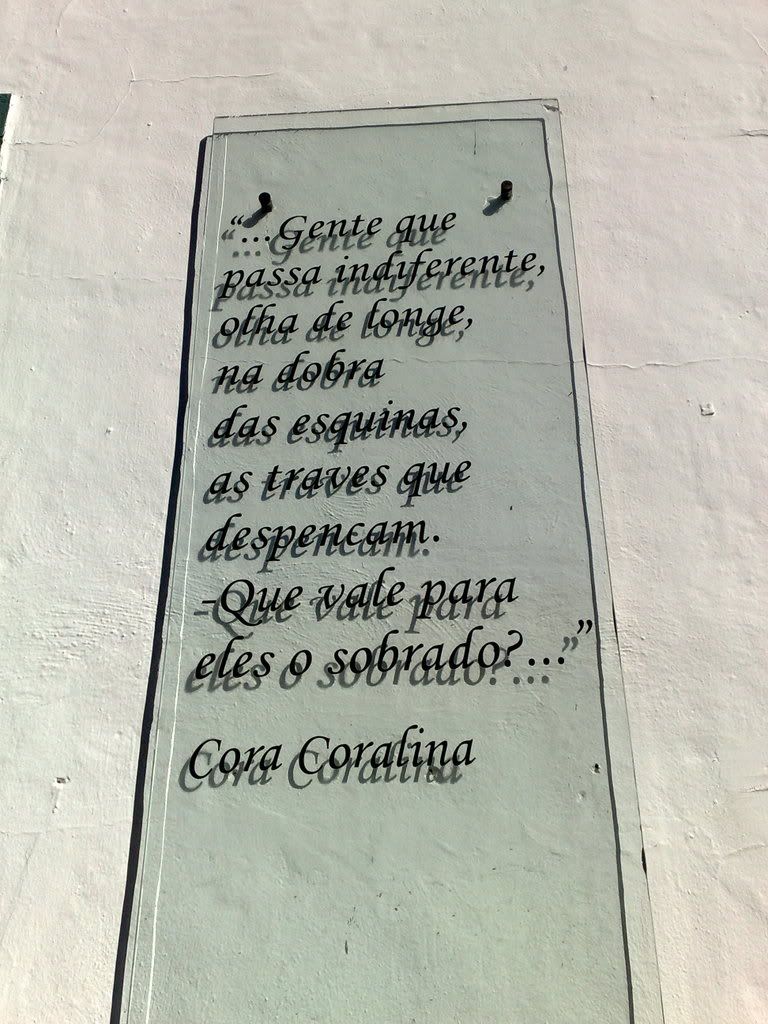 “...Gente que
passa indiferente,
olha de longe,
na dobra
das esquinas,
as traves que
despencam.
-Que vale para
eles o sobrado?...”
Cora Coralina